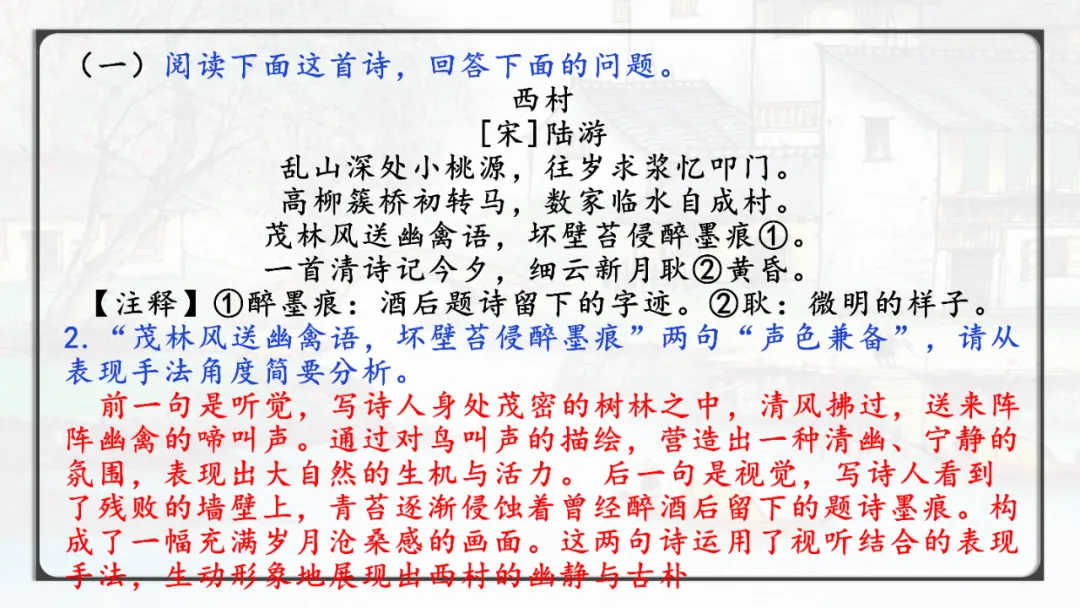 （一）阅读下面这首诗，回答下面的问题。
西村
[宋]陆游
乱山深处小桃源，往岁求浆忆叩门。
高柳簇桥初转马，数家临水自成村。
茂林风送幽禽语，坏壁苔侵醉墨痕①。
一首清诗记今夕，细云新月耿②黄昏。
【注释】①醉墨痕：酒后题诗留下的字迹。②耿：微明的样子。
2.“茂林风送幽禽语，坏壁苔侵醉墨痕”两句“声色兼备”，请从
表现手法角度简要分析。
前一句是听觉，写诗人身处茂密的树林之中，清风拂过，送来阵
阵幽禽的啼叫声。通过对鸟叫声的描绘，营造出一种清幽、宁静的
氛围，表现出大自然的生机与活力。 后一句是视觉，写诗人看到
了残败的墙壁上，青苔逐渐侵蚀着曾经醉酒后留下的题诗墨痕。构
成了一幅充满岁月沧桑感的画面。这两句诗运用了视听结合的表现
手法，生动形象地展现出西村的幽静与古朴